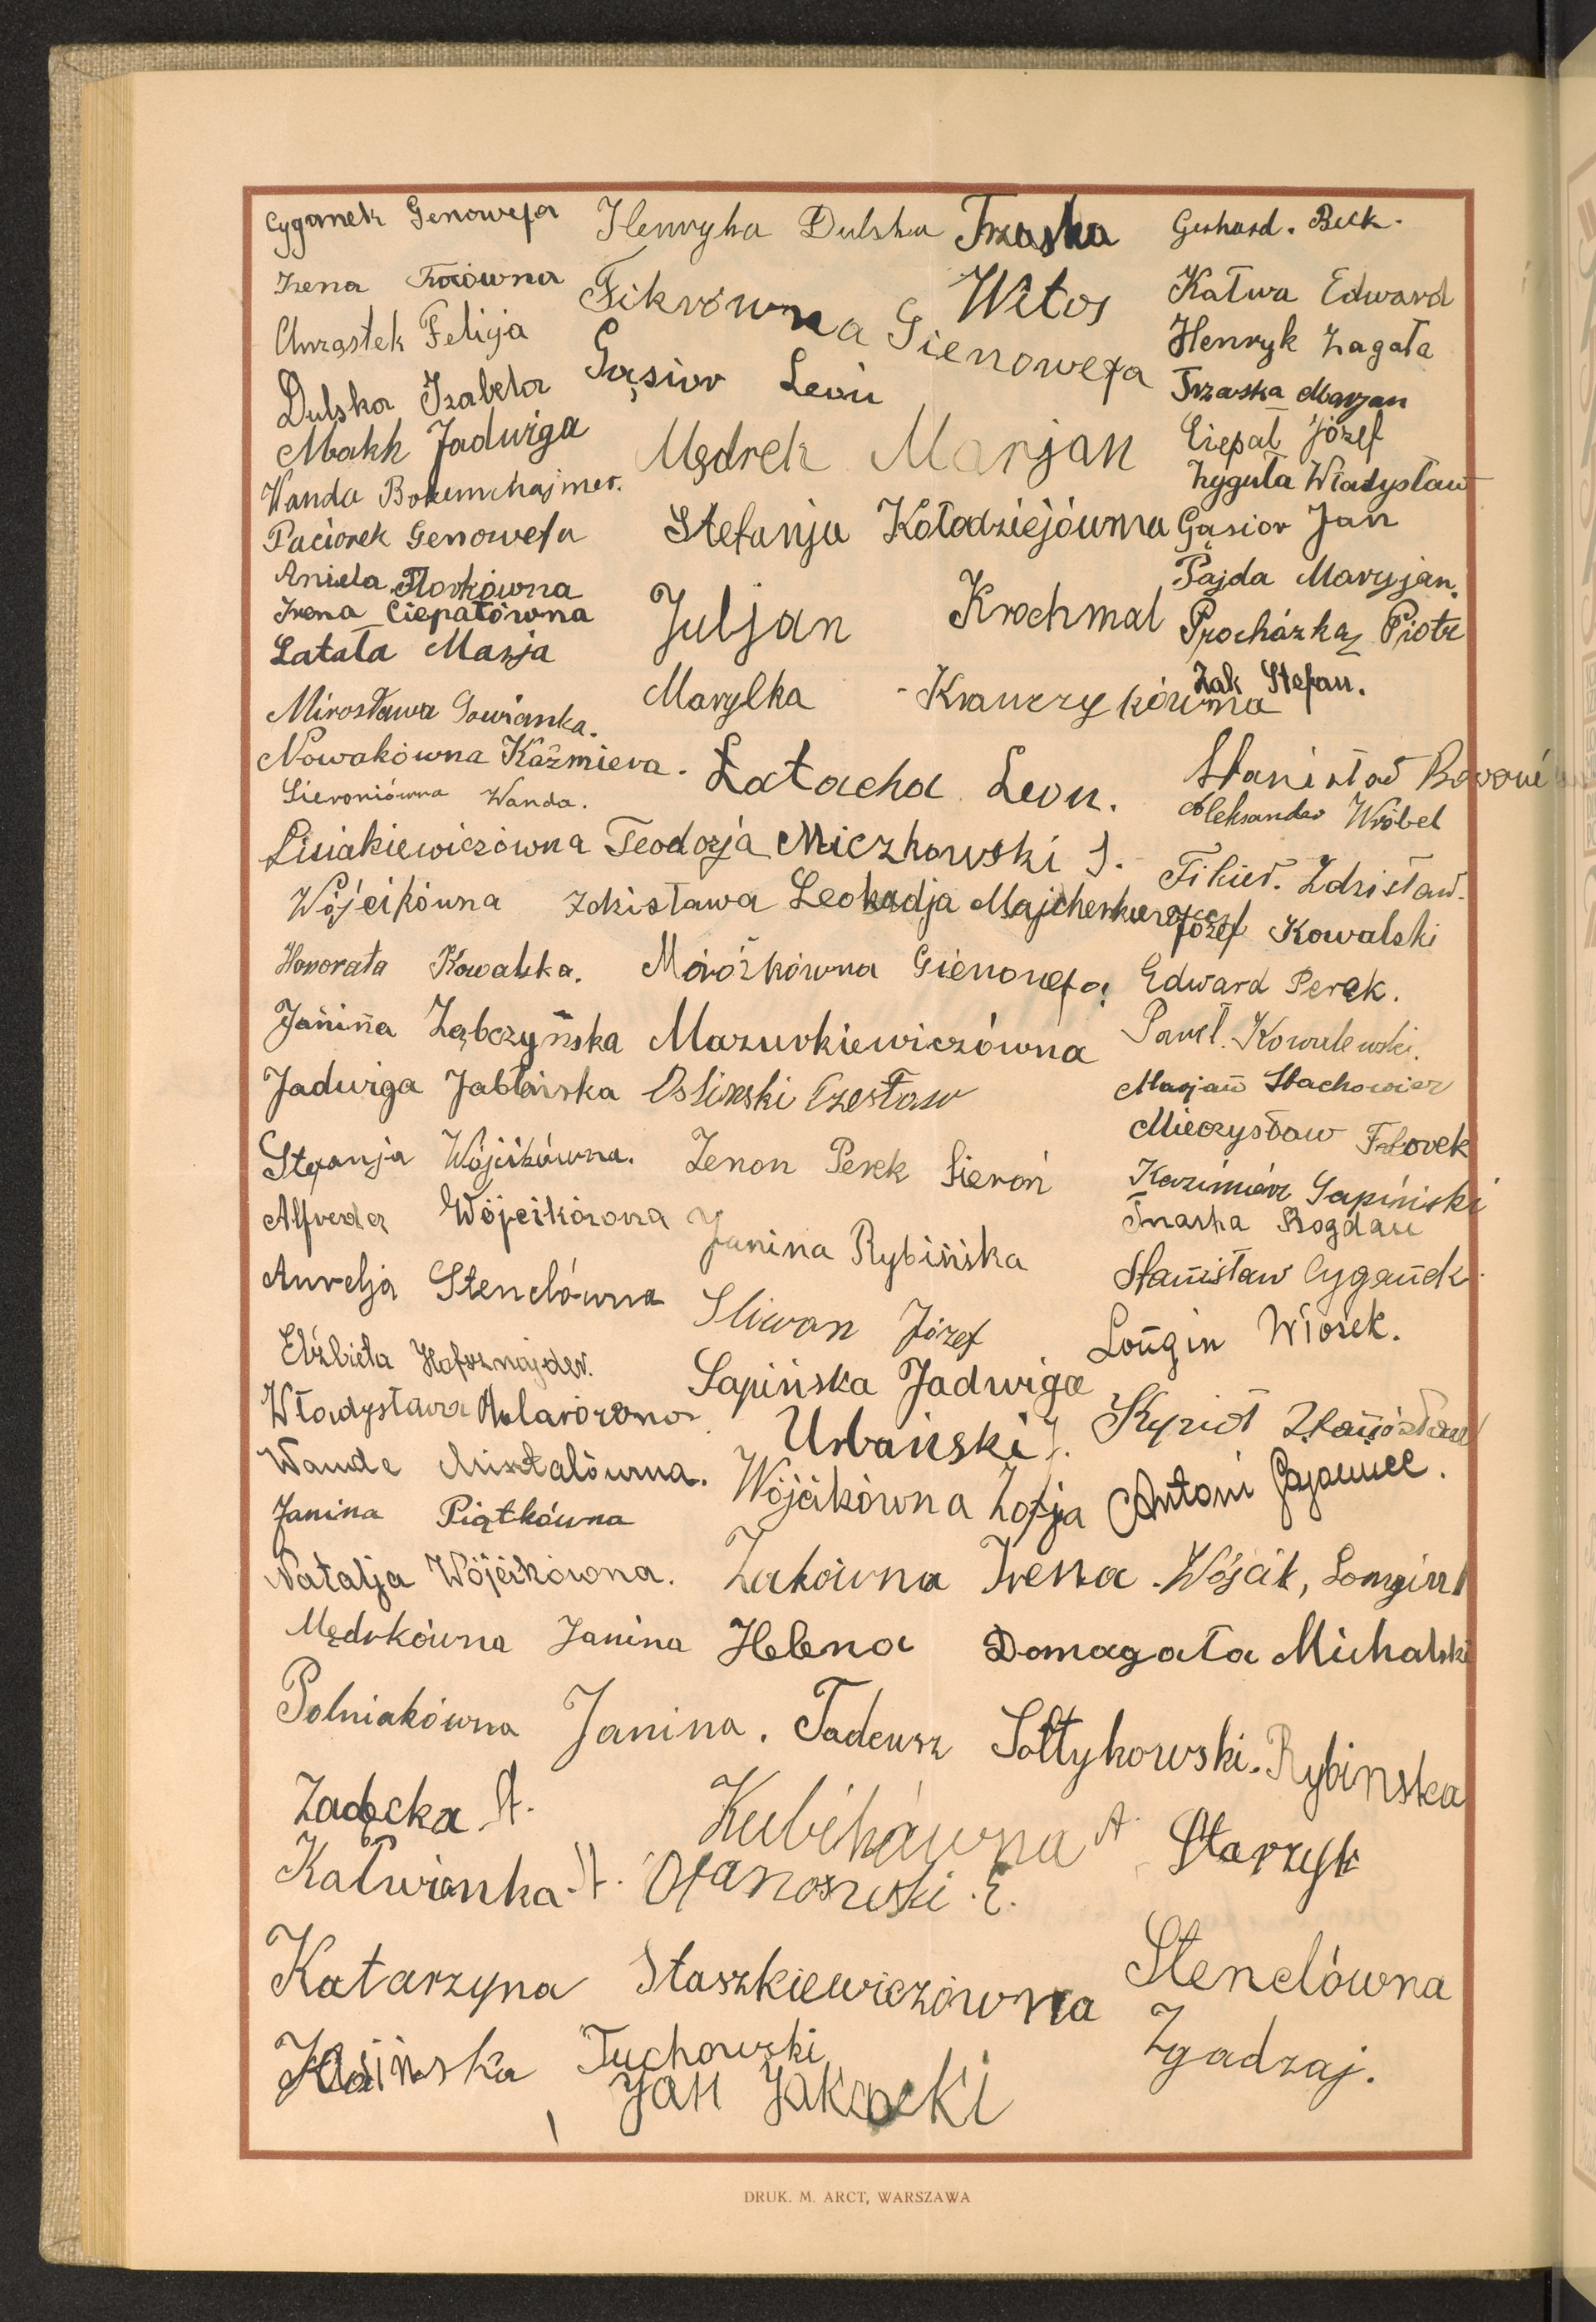 Cyganek Genowefa
Irena
Chrząstek Felicja
Dulska Izabela
Makk Jadwiga
Wanda
Paciorek Genowefa
Aniela Florkówna
Irena Ciepałówna
Latała Marja
Mirosława Gowianka.
Nowakówna Kaźmiera.
Sieroniówna Wanda.
Lisiakiewiczówna Teodozja
Wójcikówna Zdzisława
Honorata Kowalska.
Janina Ząbczyńska
Jadwiga Jabłońska
Stefanja Wójcikówna.
Alfreda Wójcikówna
Aurelja Stenclówna
Elżbieta Hofsznajder.
Władysława
Wanda Misztalówna.
Janina Piątkówna
Natalja Wójcikówna.
Mędrkówna Janina
Polniakówna Janina.
Zadęcka St.
Kałwianka St.
Katarzyna
Henryka Dulska Trzaska
Witos
Fikrówna Gienowefa
Gąsior Leon
Mędrek Marjan
Stefanja Kołodziejówna
Juljan Krochmal
Marylka Krawczykówna
Łatacha Leon.
Miczkowski J.
Leokadja
Mróżkówna Gienowefa
Mazurkiewiczówna
Osliński Czesław
Zenon Perek Sieroń
Janina Rybińska
Sliwan Józef
Sapińska Jadwiga
Urbański J.
Wójcikówna Zofja
Żakówna Irena
Helena Domagała
Tadeusz Sołtykowski.
Kubikówna A.
Staszkiewiczówna
Tuchowski
Jan
Gerhard. Beck.
Kałwa Edward
Henryk Zagała
Trzaska Marjan
Ciepał Józef
Zyguła Władysław
Gąsior Jan
Pajda Maryjan.
Procházka Piotr
Żak Stefan.
Stanisław
Aleksander Wróbel
Fikier. Zdzisław.
Józef Kowalski
Edward Perek.
Paweł. Kowalewski.
Marjan Stachowicz
Mieczysław
Kazimierz Sapiński
Trzaska Bogdan
Stanisław Cyganek.
Longin Włosek.
Antoni
Wójcik, Longin
Michalski
Rybinska
Starzyk
Stenclówna
Zgadzaj.
DRUK. M. ARCT, WARSZAWA